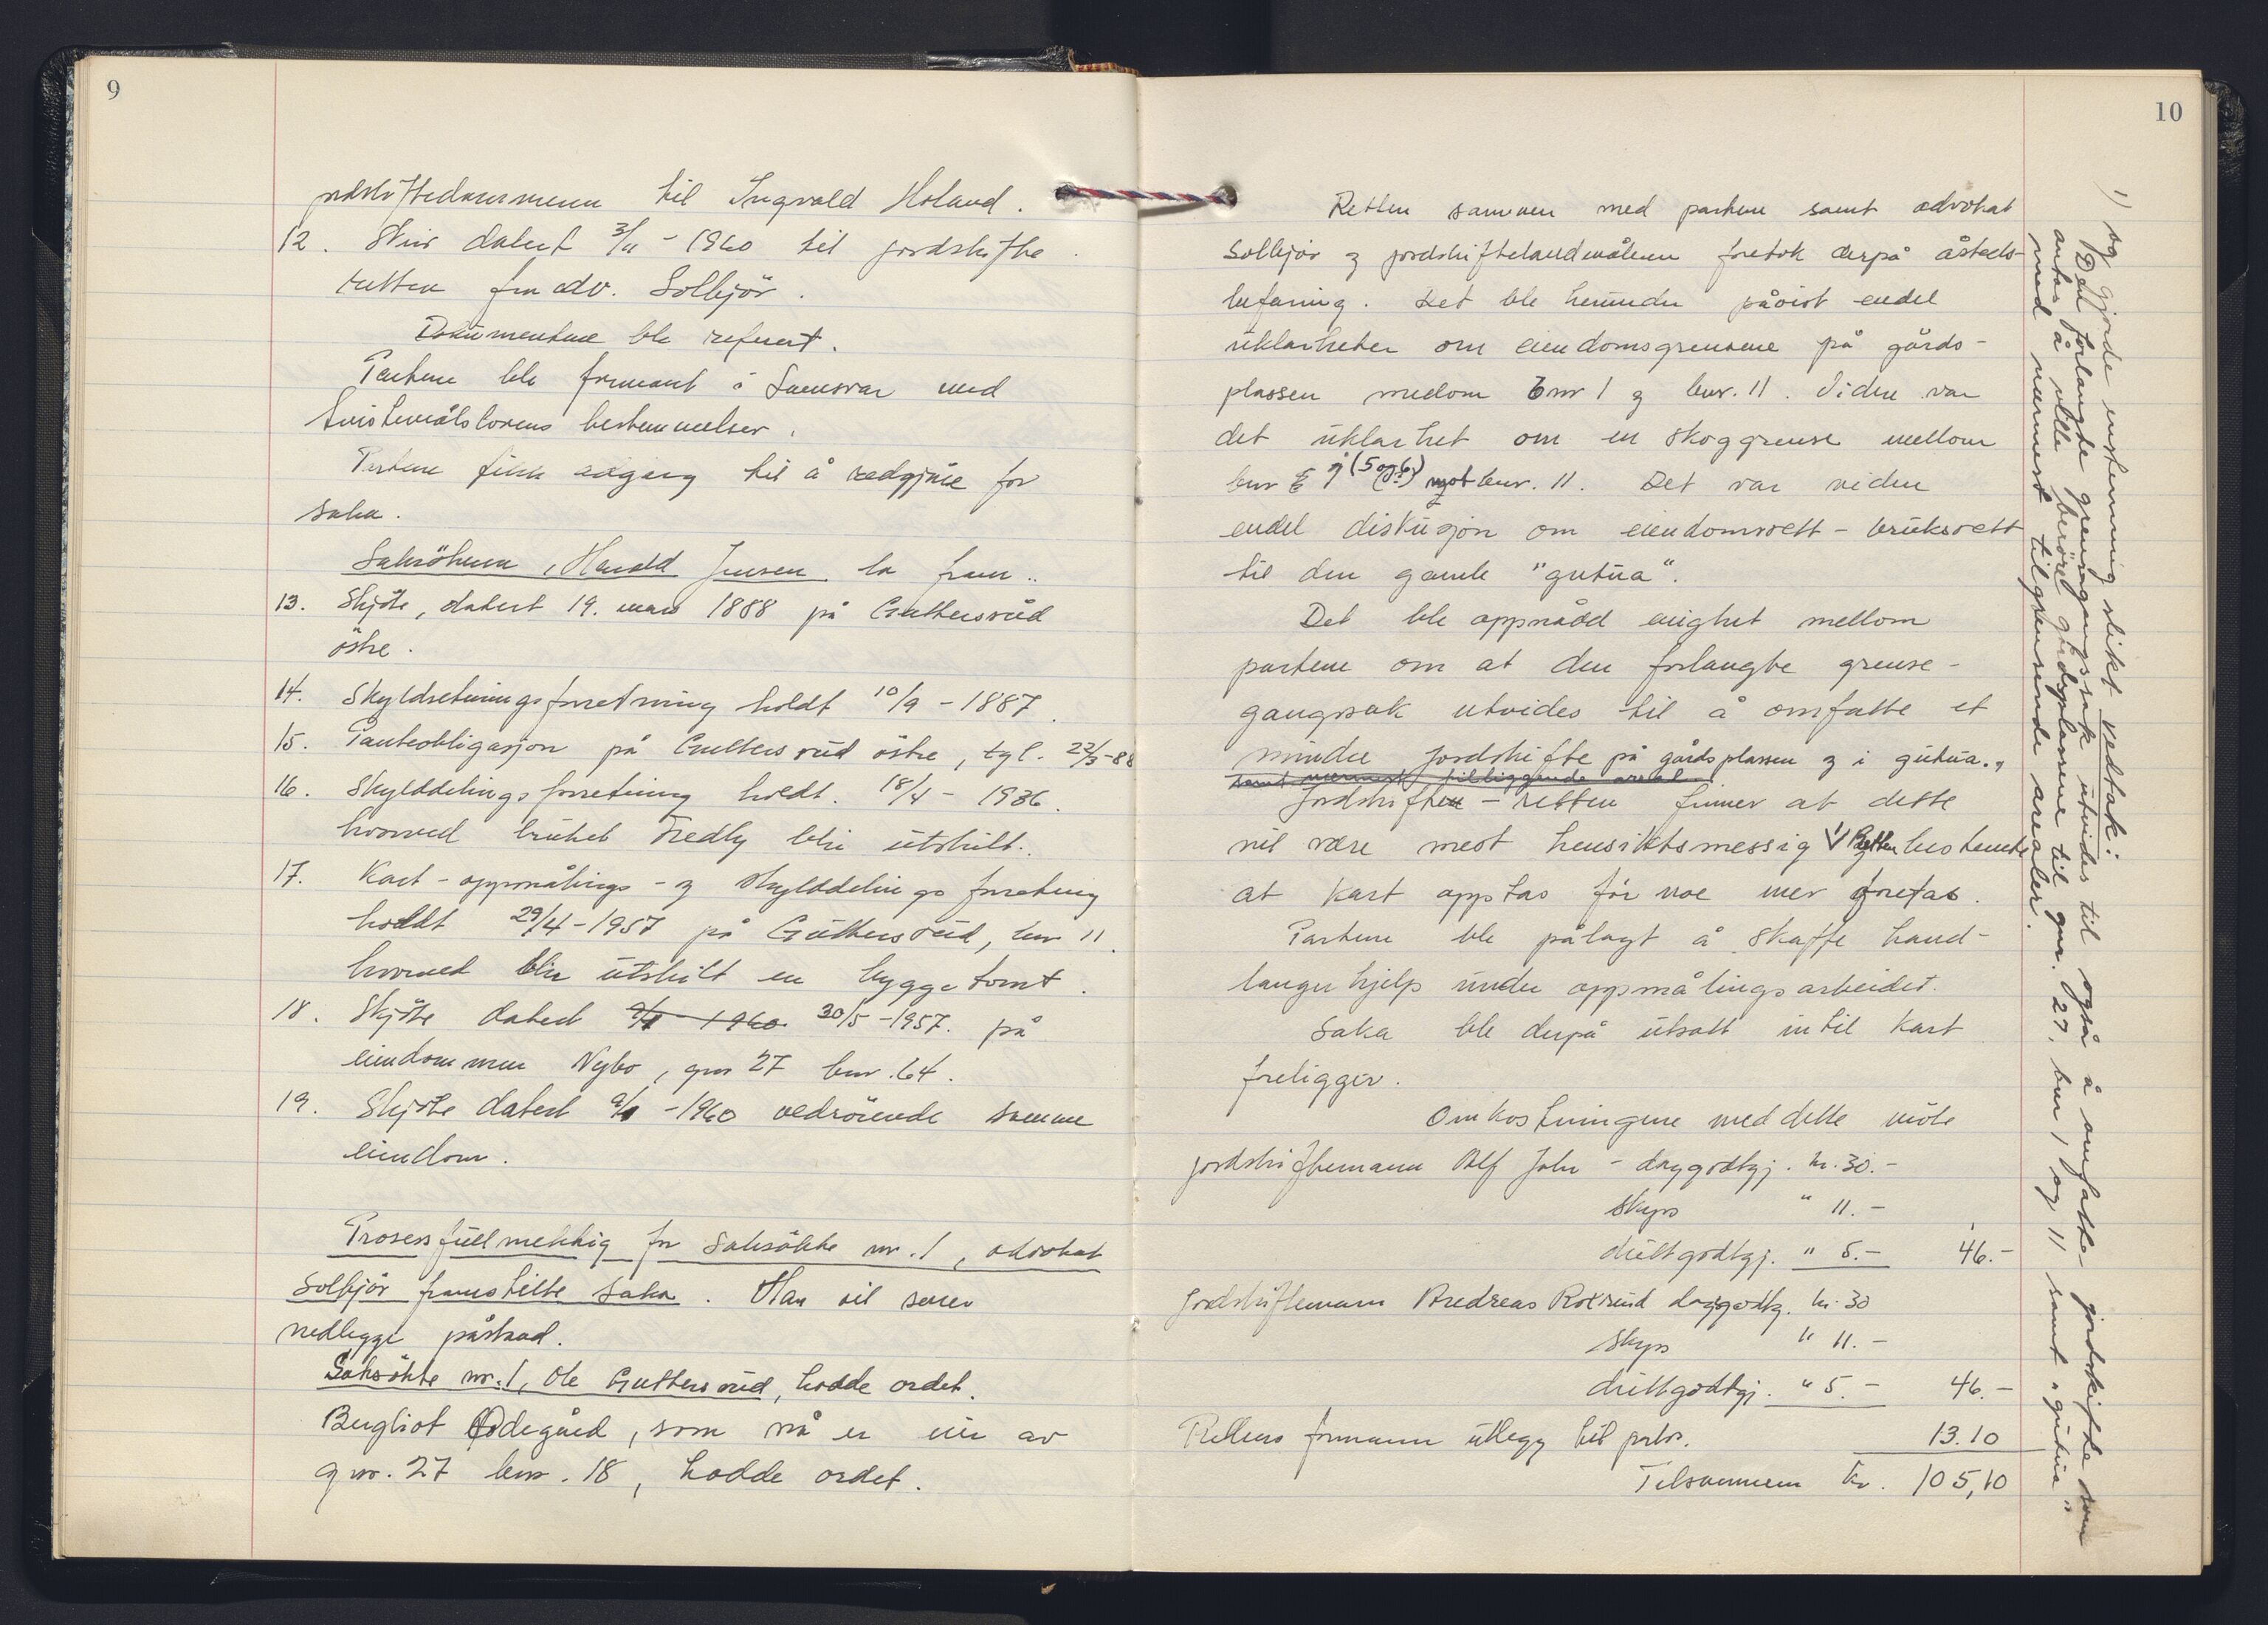 9
jordskiftedommeren til Ingvald Holand.
12. Skriv datert 3/11 - 1960 til jordskifte
retten fra adv. Solbjör.
Dokumentene ble referert.
Partene ble formant i samsvar med
tvistemålslovens bestemmelser.
Partene fikk adgang til å redgjöre for
saka.
Saksökeren, Harald Jensen la fram..
13. Skjöte, datert 19. mars 1888 på Guttersrud
östre.
14. Skyldsetningsforretning holdt 10/9 - 1887.
15. Panteobligasjon på Guttersrud östre, tgl. 22/3-88
16. Skylddelingsforretning holdt. 18/4 - 1936.
hvorved bruket Fredly ble utskilt.
17. Kart - oppmålings - og skylddelings forretning
holdt 29/4 - 1957 på Guttersrud, bnr 11.
hvorved blir utskilt en byggetomt.
18. Skjöte datert 9/1 - 1960 30/5 - 1957. på
eiendommen Nybo, gnr 27 bnr. 64.
19. Skjöte datert 9/1 - 1960 vedrörende samme
eiendom.
Prosessfullmektig for saksökte nr. 1, advokat
Solbjör framstilte saka. Han vil senere
nedlegge påstand.
Saksökte nr. 1, Ole Guttersrud, hadde ordet.
Bergliot Ödegård, som nå er eier av
gnr. 27 bnr. 18, hadde ordet.
10
Retten sammen med partene samt advokat
Solbjör og jordskiftelandmåleren foretok derpå åsteds-
befaring. Det ble herunder påvist endel
uklarheter om eiendomsgrensene på gårds-
plassen mellom bnr 1 og bnr. 11. Videre var
det uklarhet om en skoggrense mellom
bnr 9 (5 og 6) mot bnr. 11. Det var videre
endel diskusjon om eiendomsrett - bruksrett
til den gamle "gutua".
Det ble oppnådd enighet mellom
partene om at den forlangte grense-
gangssak utvides til å omfatte et
mindre jordskifte på gårdsplassen og i gutua.
samt nærmest tilliggende areal.
Jordskifte - retten finner at dette
vil være mest hensiktsmessig 1) Retten bestemte
at kart opptas för noe mer foretas.
Partene ble pålagt å skaffe hand-
langerhjelp under oppmålingsarbeidet.
Saka ble derpå utsatt inntil kart
foreligger.
Omkostningene med dette möte
jordskiftemann Alf John - daggodtgj. kr. 30.-
skyss " 11.-
diettgodtgj. " 5.- 46.-
Jordskiftemann Andreas daggodtg. kr. 30
skyss " 11.-
diettgodtgj. " 5.- 46.-
Rettens formann utlegg til porto. 13.10
Tilsammen kr. 105,10
1) og gjorde enstemmig slikt vedtak:
Den forlangte grensegangssak utvides til også å omfatte jordskifte som
antas å ville beröre gårdsplassene til gnr. 27, bnr 1 og 11 samt "gutua"
med nærmest tilgrensende arealer.